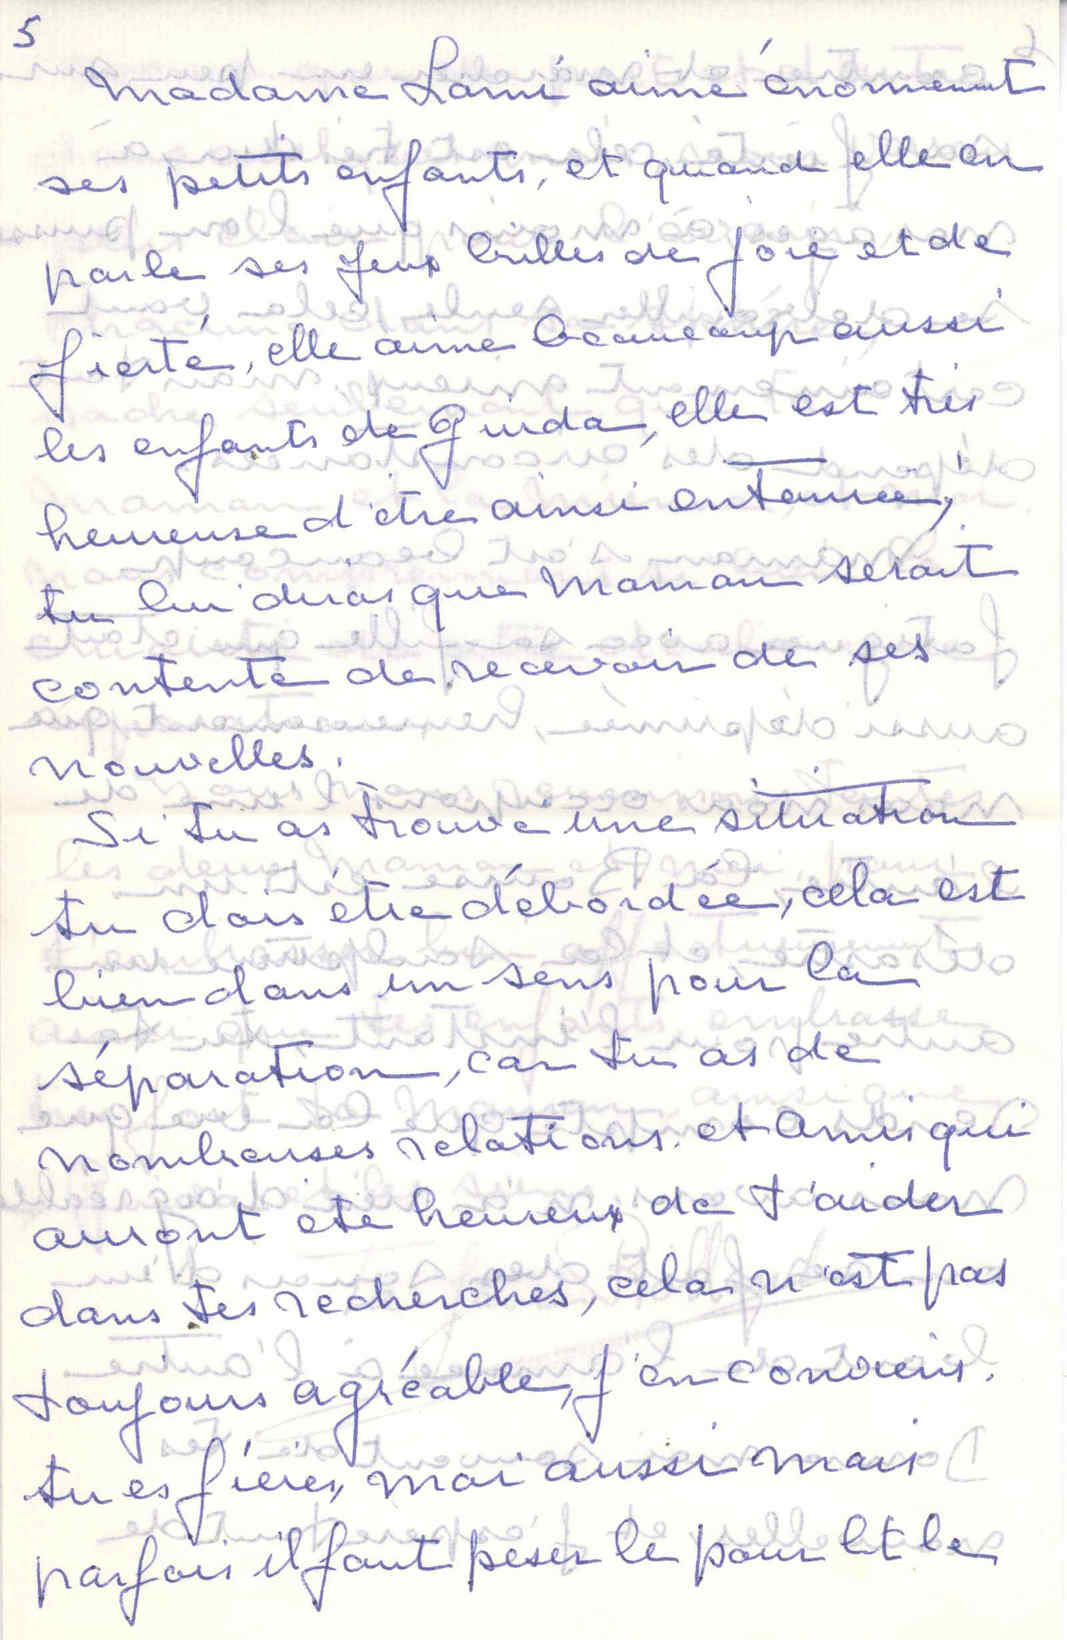 5
Madame Lami aime énormement
ses petits enfants, et quand elle en
parle ses yeux brilles de joie et de
fierté, elle aime beaucoup aussi
les enfants de Guida, elle est très
heureuse d'etre ainsi entourée,
tu lui diras que Maman serait
contente de recevoir de ses
nouvelles.
Si tu as trouvé une situation
tu dois être débordée, cela est
bien dans un sens pour la
séparation, car tu as de
nombreuses relations et amis qui
auront ete heureux de t'aider
dans tes recherches, cela n'est pas
toujours agréable, j'en conviens.
tu es fière, moi aussi mais
parfois il faut peser le pour et le